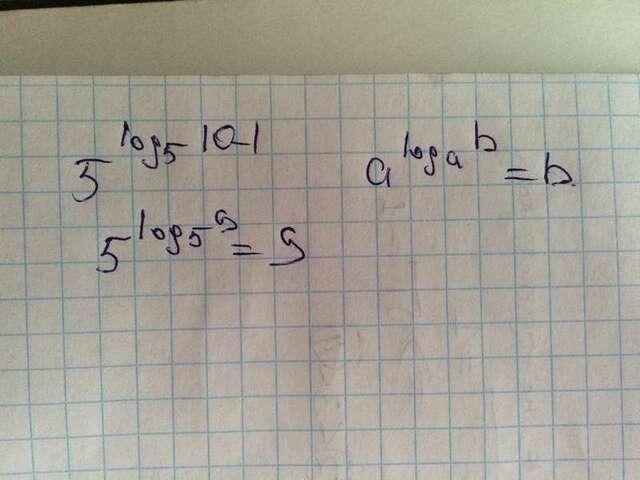 5^log₅ 10-1 a^logₐ b = b
5^log₅ 9 = 9